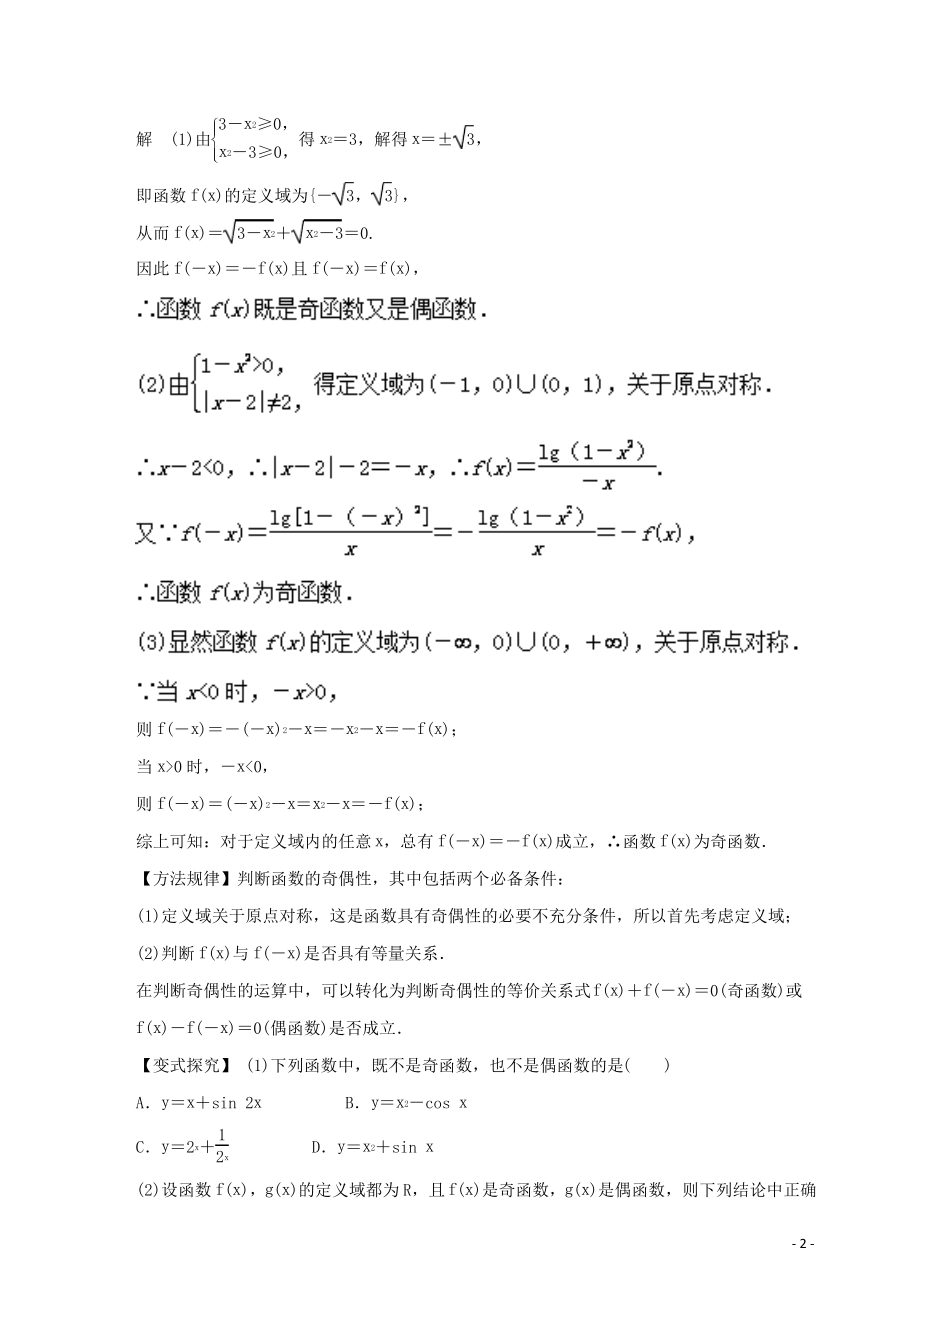 解 (1)由{3－x²≥0，x²－3≥0，得 x²＝3，解得 x＝±√3，
即函数 f(x)的定义域为{－√3，√3}，
从而 f(x)＝√(3－x²)＋√(x²－3)＝0.
因此 f(－x)＝－f(x)且 f(－x)＝f(x)，
∴函数 f(x)既是奇函数又是偶函数.
(2)由{1－x²>0，|x－2|≠2，得定义域为(－1，0)∪(0，1)，关于原点对称.
∴x－2<0，∴|x－2|－2＝－x，∴f(x)＝lg（1－x²）/－x.
又∵f(－x)＝lg[1－（－x）²]/x＝－lg（1－x²）/x＝－f(x)，
∴函数 f(x)为奇函数.
(3)显然函数 f(x)的定义域为(－∞，0)∪(0，＋∞)，关于原点对称.
∵当 x<0 时，－x>0，
则 f(－x)＝－(－x)²－x＝－x²－x＝－f(x)；
当 x>0 时，－x<0，
则 f(－x)＝(－x)²－x＝x²－x＝－f(x)；
综上可知：对于定义域内的任意 x，总有 f(－x)＝－f(x)成立，∴函数 f(x)为奇函数.
【方法规律】判断函数的奇偶性，其中包括两个必备条件：
(1)定义域关于原点对称，这是函数具有奇偶性的必要不充分条件，所以首先考虑定义域；
(2)判断 f(x)与 f(－x)是否具有等量关系.
在判断奇偶性的运算中，可以转化为判断奇偶性的等价关系式 f(x)＋f(－x)＝0(奇函数)或
f(x)－f(－x)＝0(偶函数)是否成立.
【变式探究】 (1)下列函数中，既不是奇函数，也不是偶函数的是(　　)
A．y＝x＋sin 2x B．y＝x²－cos x
C．y＝2ˣ＋1/2ˣ D．y＝x²＋sin x
(2)设函数 f(x)，g(x)的定义域都为 R，且 f(x)是奇函数，g(x)是偶函数，则下列结论中正确
- 2 -